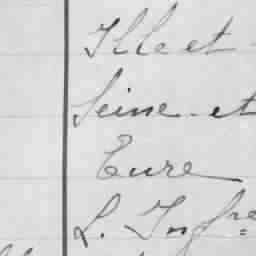 Ille et
Seine et
Eure
L. Infre